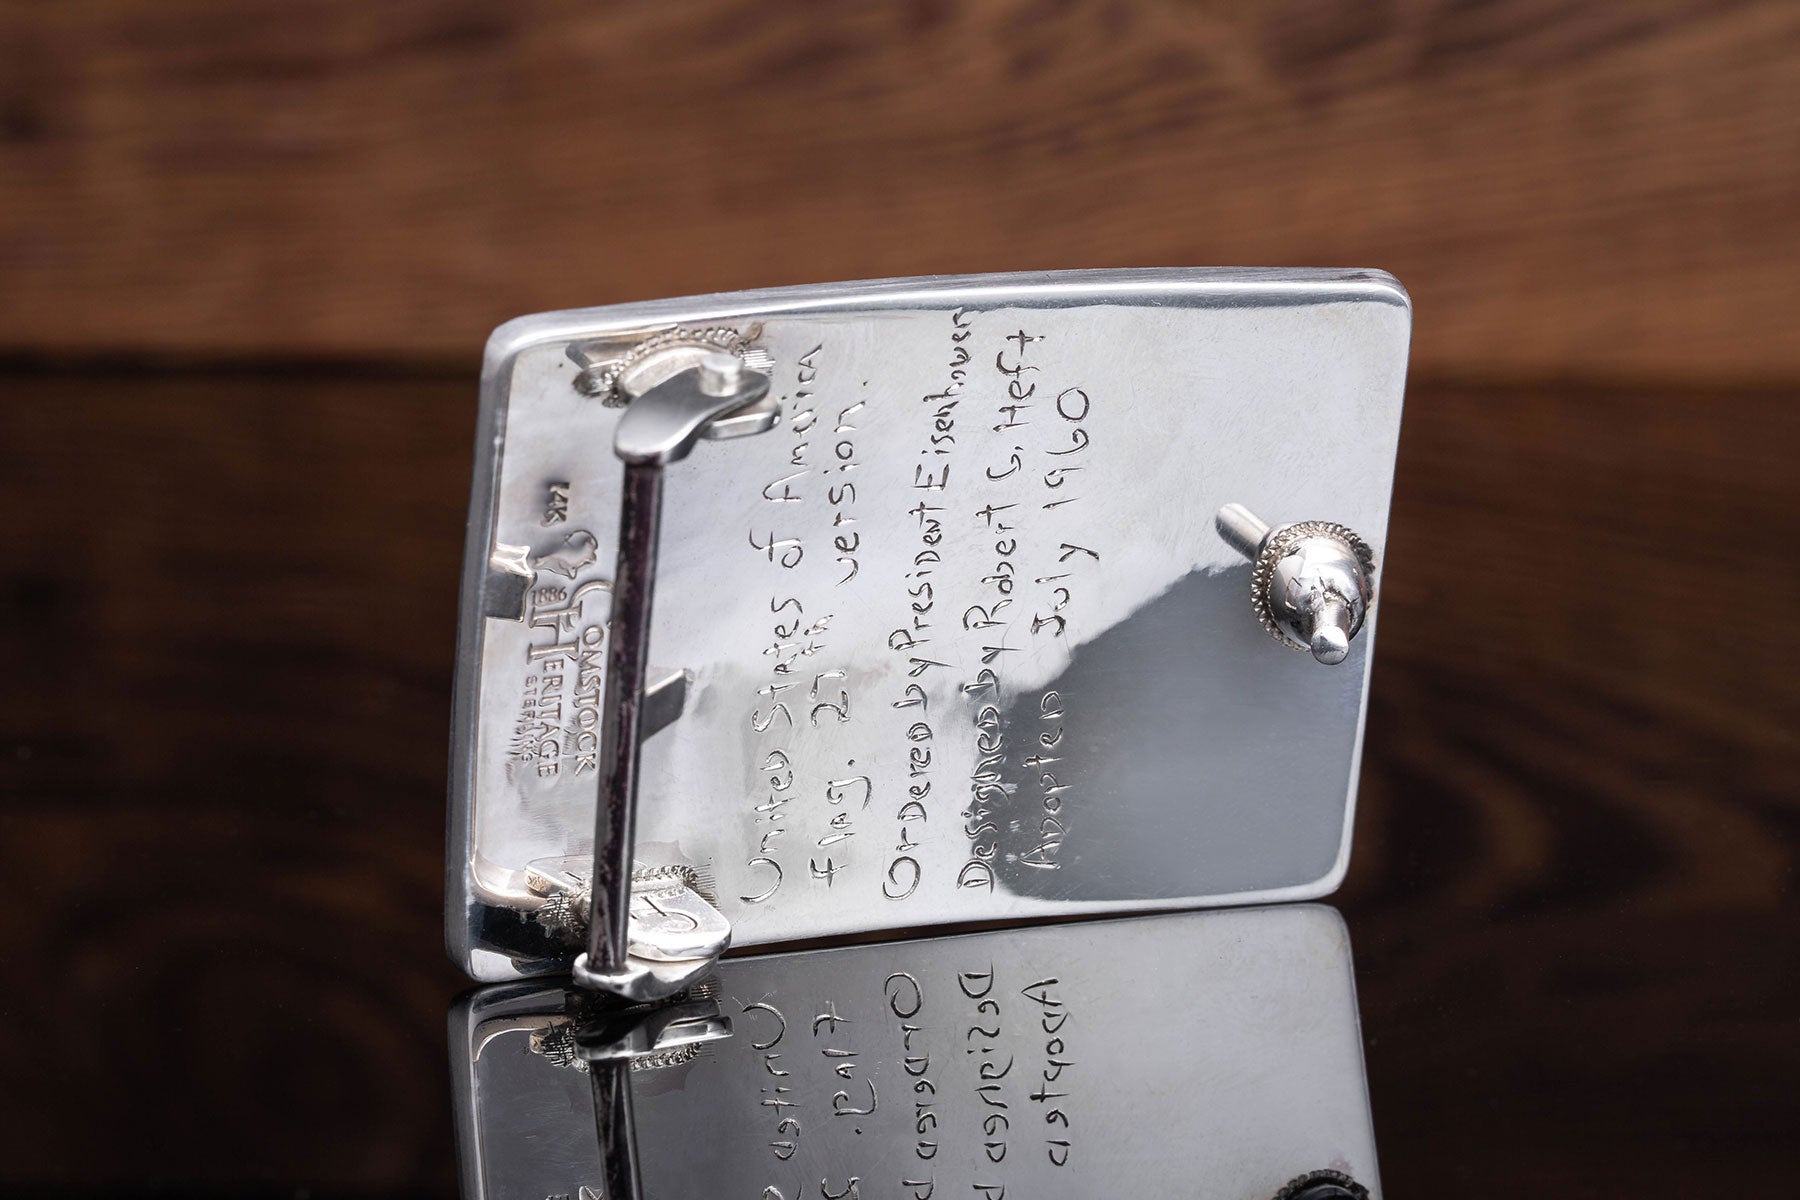 14K
1886
COMSTOCK
HERITAGE
STERLING
United States of America
Flag. 27th version.
Ordered by President Eisenhower
Designed by Robert G. Heft
Adopted July 1960